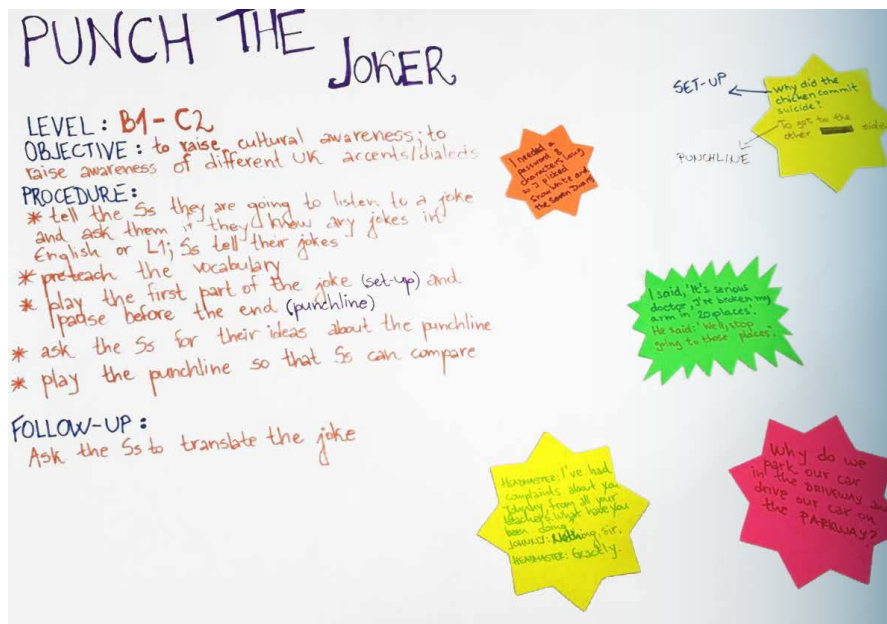 PUNCH THE
JOKER
LEVEL: B1-C2
OBJECTIVE: to raise cultural awareness; to
raise awareness of different UK accents/dialects
PROCEDURE:
* tell the Ss they are going to listen to a joke
and ask them if they know any jokes in
English or L1; Ss tell their jokes
* preteach the vocabulary
* play the first part of the joke (set-up) and
pause before the end (punchline)
* ask the Ss for their ideas about the punchline
* play the punchline so that Ss can compare
FOLLOW-UP:
Ask the Ss to translate the joke
SET-UP
PUNCHLINE
Why did the
chicken commit
suicide?
To get to the
other side
I needed a
password 8
characters long
so I picked
Snow White and
the Seven Dwarfs
I said, 'It's serious
doctor, I've broken my
arm in 20 places'.
He said: 'Well, stop
going to those places'.
HEADMASTER: I've had
complaints about you
Johnny, from all your
teachers. What have you
been doing
JOHNNY: Nothing, sir.
HEADMASTER: Exactly.
Why do we
park our car
in the DRIVEWAY and
drive our car on
the PARKWAY?